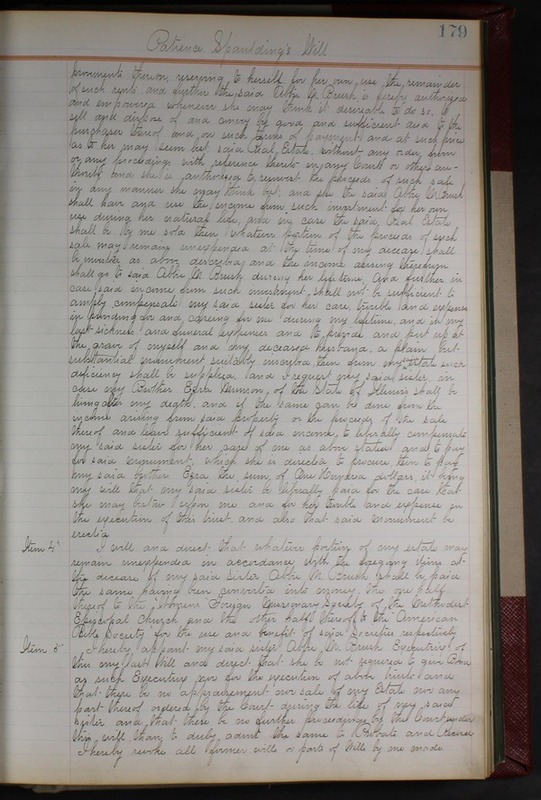 179
Patience Spaulding's Will
provements thereon, reserving to herself for her own use the remainder
of such rents and further the said Abbie M. Brush is hereby authorized
and empowered whenever she may think it desireable to do so, to
sell and dispose of and convey by good and sufficient deed to the
purchaser thereof and on such terms of payment and at such price
as to her may seem best said Real Estate, without any order from
or any proceedings with reference thereto in any Court or others au-
thority and she is authorized to reinvest the proceeds of such sale
in any manner she may think best, and she the said Abbie M. Brush
shall have and use the income from such investment for her own
use during her natural life, and in case the said Real Estate
shall be by me sold then whatever portion of the proceeds of such
sale may remain unexpended at the time of my decease shall
be invested as above described and the income arising therefrom
shall go to said Abbie M. Brush during her lifetime, And further in
case said income from such investment shall not be sufficient to
amply compensate my said sister for her care, trouble and expense
in providing for and caring for me during my lifetime, and in my
last sickness and funeral expenses and to provide and put up at
the grave of myself and my deceased husband, a plain but
substantial monument suitably inscribed then from my estate such
deficiency shall be supplied, and I request my said sister, in
case my Brother Ezra Munson, of the State of Illinois shall be
living after my death, and if the same can be done from the
income arising from said property or the proceeds of the sale
thereof and leave sufficient of said income, to liberally compensate
my said sister for her care of me as above stated and to pay
for said monument which she is directed to procure, then to pay
my said brother Ezra the sum of One Hundred dollars, it being
my will that my said sister be liberally paid for the care that
she may bestow upon me and for her trouble and expense in
the execution of this trust, and also that said monument be
erected.
Item 4th I will and direct that whatever portion of my estate may
remain unexpended in accordance with the foregoing items at
the decease of my said sister, Abbie M. Brush shall be paid
the same having been converted into money, the one half
thereof to the Womens Foreign Missionary Society of the Methodist
Episcopal Church and the other half thereof to the American
Bible Society for the use and benefit of said Societies respectively
Item 5th I hereby appoint my said sister Abbie M. Brush Executrix of
this my last Will and direct that she be not required to give Bond
as such Executrix nor for the execution of above trust and
that there be no appraisement nor sale of my Estate nor any
part thereof ordered by the Court during the life of my said
sister and that there be no further proceedings by the Court under
this will than to duly admit the same to Probate and Record
I hereby revoke all former wills or parts of Wills by me made